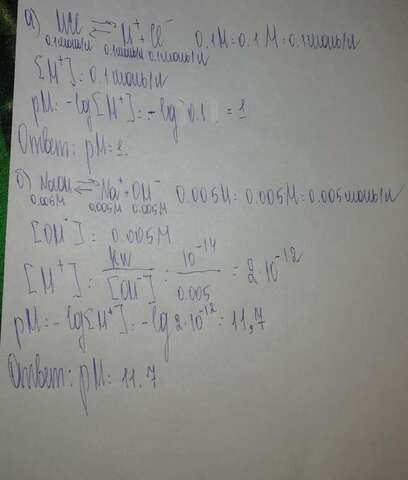 а) HCl ⇄ H⁺ + Cl⁻ 0.1M = 0.1M = 0.1моль/л
0.1моль/л 0.1моль/л 0.1моль/л
[H⁺] = 0.1моль/л
pH = -lg[H⁺] = -lg 0.1 = 1
Ответ: pH = 1.
б) NaOH ⇄ Na⁺ + OH⁻ 0.005M = 0.005M = 0.005моль/л
0.005M 0.005M 0.005M
[OH⁻] = 0.005M
[H⁺] = Kw/[OH⁻] = 10⁻¹⁴/0.005 = 2·10⁻¹²
pH = -lg[H⁺] = -lg 2·10⁻¹² = 11,7
Ответ: pH = 11.7